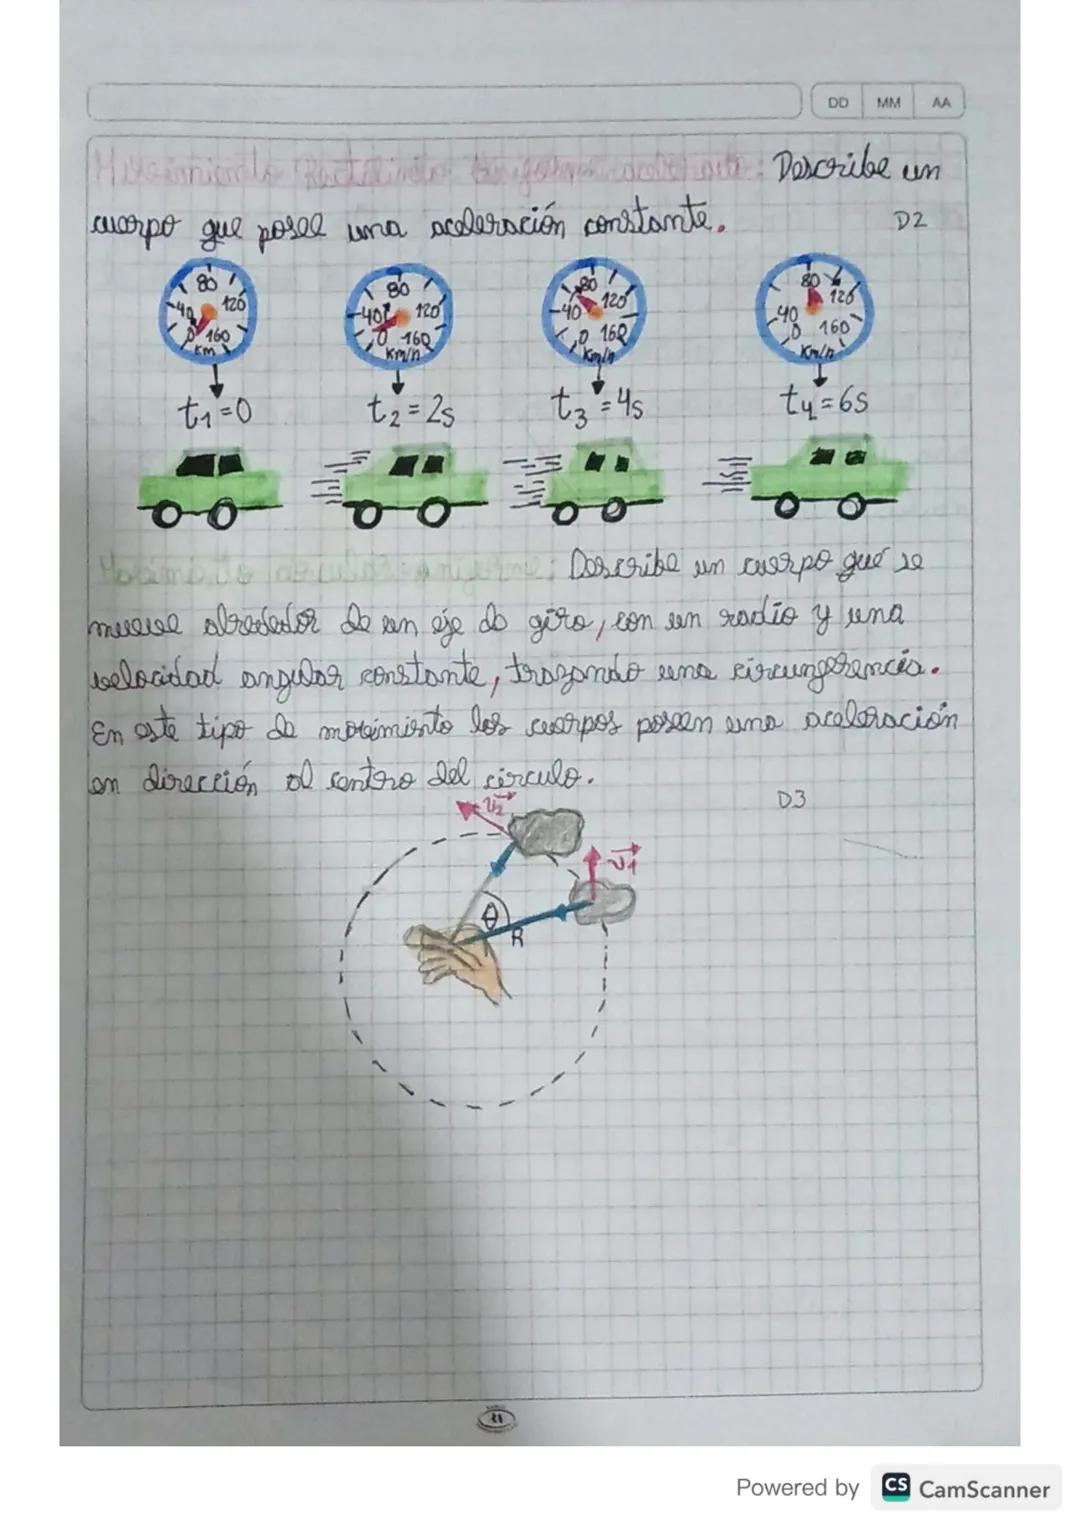 DD MM AA
Movimiento Rectilíneo Uniforme acelerado: Describe un
cuerpo que posee una aceleración constante.
D2
80 80 80 80
40 120 40 120 40 120 40 120
0 160 0 160 0 160 0 160
Km Km/h Km/h Km/h
t1=0 t2=2s t3=4s t4=6s
Movimiento circular uniforme: Describe un cuerpo que se
mueve alrededor de un eje de giro, con un radio y una
velocidad angular constante, trazando una circunferencia.
En este tipo de movimiento los cuerpos poseen una aceleración
en dirección al centro del círculo.
D3
v2
v1
θ
R
Powered by CS CamScanner